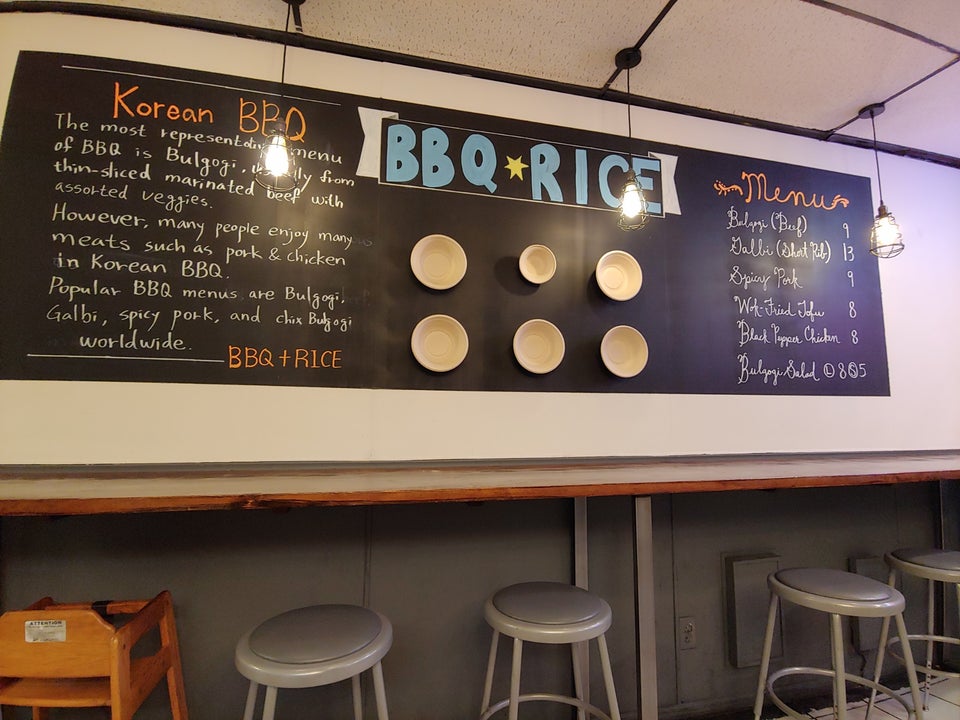 Korean BBQ
The most representative menu
of BBQ is Bulgogi, usually from
thin-sliced marinated beef with
assorted veggies.
However, many people enjoy many
meats such as pork & chicken
in Korean BBQ.
Popular BBQ menus are Bulgogi,
Galbi, spicy pork, and chix Bulgogi
worldwide.
BBQ + RICE
BBQ RICE
Menu
Bulgogi (Beef) 9
Galbi (Short Rib) 13
Spicy Pork 9
Wok-Fried Tofu 8
Black Pepper Chicken 8
Bulgogi Salad Ⓛ 8 Ⓢ 5
ATTENTION